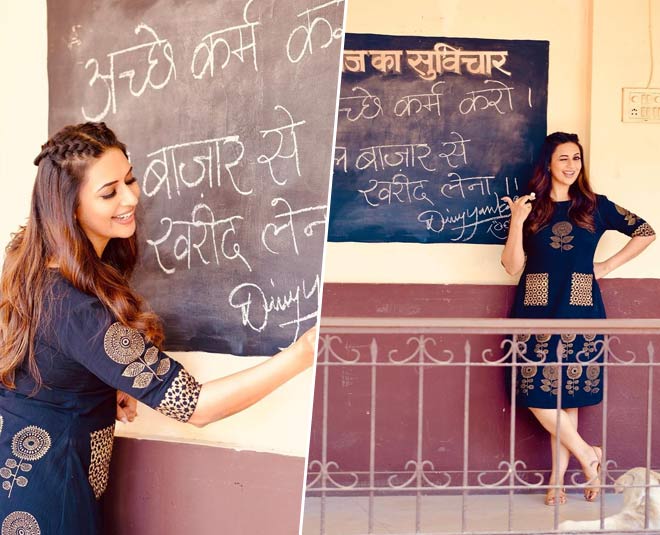 अच्छे कर्म
बाज़ार से
खरीद लेना
का सुविचार
च्छे कर्म करो ।
बाज़ार से
खरीद लेना !!
Divyanka